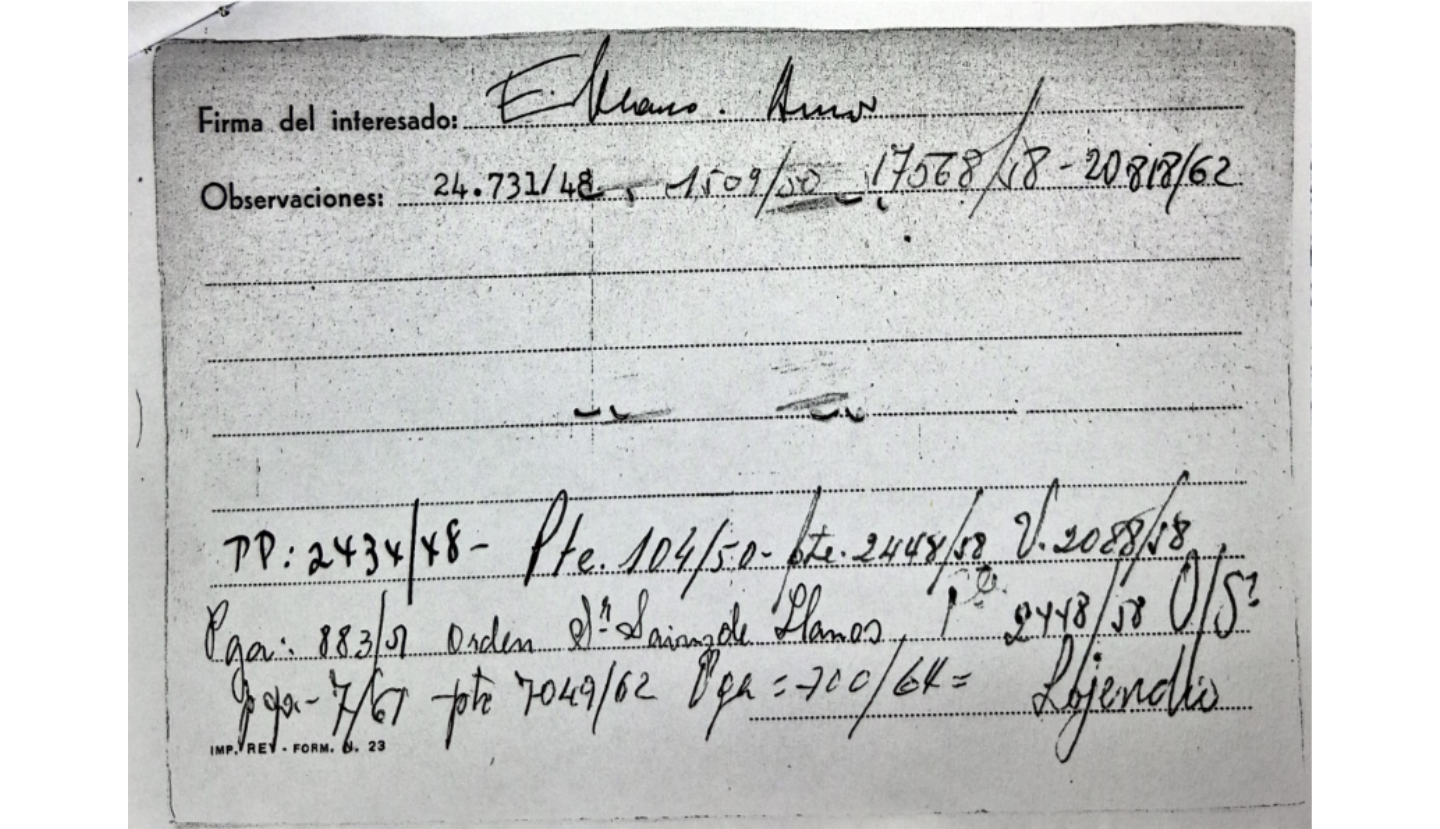 Firma del interesado: E.
Observaciones: 24.731/48, 1509/50, 17568/58 - 20818/62
PP: 2434/48 - Pte. 104/50 - pte. 2448/58 V. 2088/58
Pga: 883/51 orden Sr. Sainz de Llanos, Pte 2448/58 O/Sr
pga - 7/61 - pte 7049/62 Pga = 700/64 = Lojendio
IMP. REY - FORM. N. 23